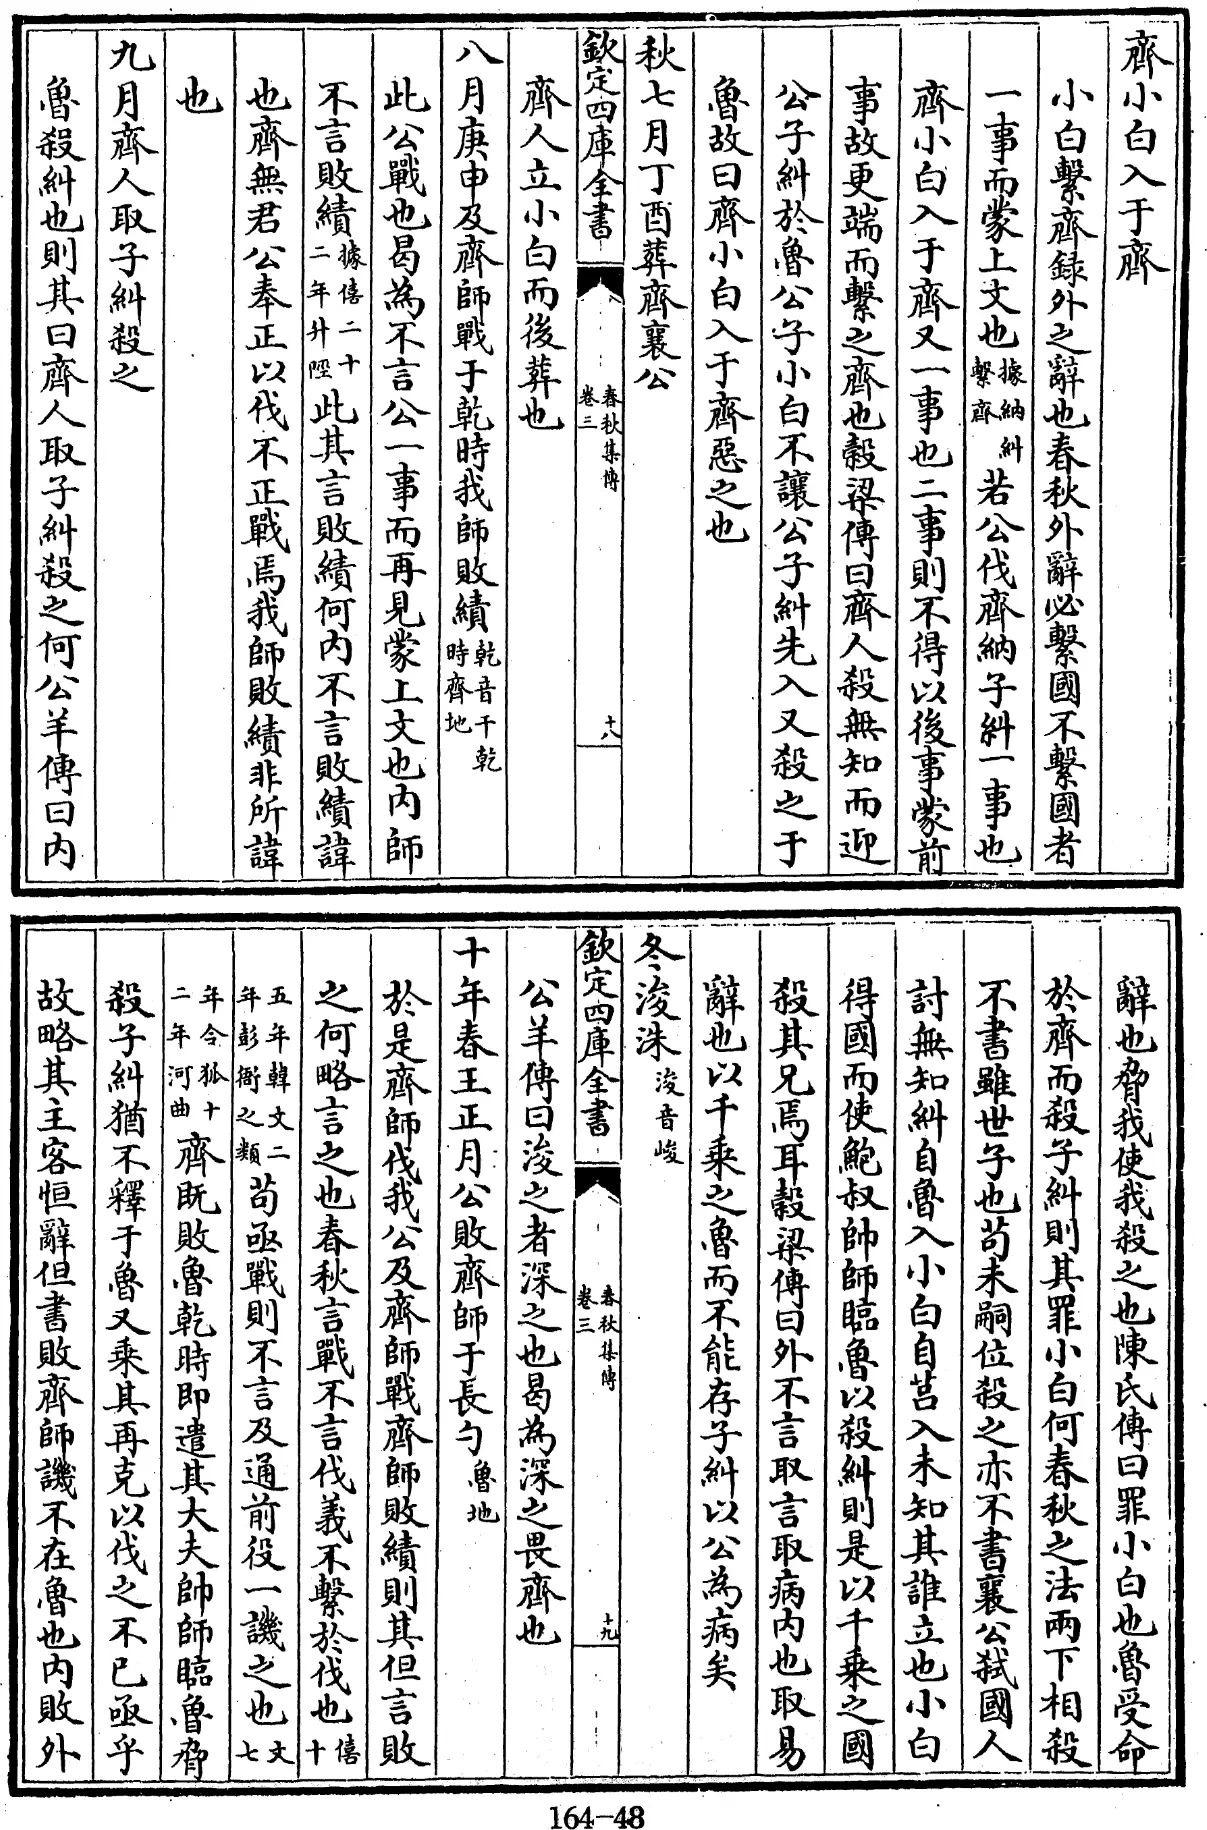 齊小白入于齊
小白繫齊録外之辭也春秋外辭必繫國不繫國者
一事而蒙上文也據納糾繫齊若公伐齊納子糾一事也
齊小白入于齊又一事也二事則不得以後事蒙前
事故更端而繫之齊也穀梁傳曰齊人殺無知而迎
公子糾於魯公子小白不讓公子糾先入又殺之于
魯故曰齊小白入于齊惡之也
秋七月丁酉葬齊襄公
欽定四庫全書
春秋集傳
卷三
十八
齊人立小白而後葬也
八月庚申及齊師戰于乾時我師敗績乾音干乾時齊地
此公戰也曷為不言公一事而再見蒙上文也内師
不言敗績據僖二十二年升陘此其言敗績何内不言敗績諱
也齊無君公奉正以伐不正戰焉我師敗績非所諱
也
九月齊人取子糾殺之
魯殺糾也則其曰齊人取子糾殺之何公羊傳曰内
辭也脅我使我殺之也陳氏傳曰罪小白也魯受命
於齊而殺子糾則其罪小白何春秋之法兩下相殺
不書雖世子也茍未嗣位殺之亦不書襄公弑國人
討無知糾自魯入小白自莒入未知其誰立也小白
得國而使鮑叔帥師臨魯以殺糾則是以千乘之國
殺其兄焉耳穀梁傳曰外不言取言取病内也取易
辭也以千乘之魯而不能存子糾以公為病矣
冬浚洙浚音峻
欽定四庫全書
春秋集傳
卷三
十九
公羊傳曰浚之者深之也曷為深之畏齊也
十年春王正月公敗齊師于長勺魯地
於是齊師伐我公及齊師戰齊師敗績則其但言敗
之何略言之也春秋言戰不言伐義不繫於伐也僖十
五年韓文二年彭衙之類茍亟戰則不言及通前役一譏之也文七
年令狐十二年河曲齊既敗魯乾時即遣其大夫帥師臨魯脅
殺子糾猶不釋于魯又乘其再克以伐之不已亟乎
故略其主客恒辭但書敗齊師譏不在魯也内敗外
164-48